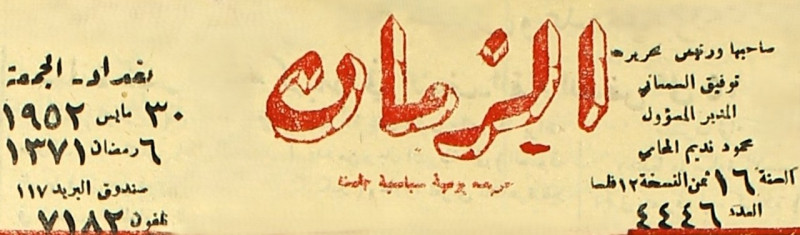 صاحبها ورئيس تحريره
توفيق السمعاني
المدير المسؤول
محمود نديم المحامي
السنة ١٦ ثمن النسخة ١٢ فلسا
العدد ٤٤٤٦
الزمان
جريدة يومية سياسية
بغداد ـ الجمعة
٣٠ مايس ١٩٥٢
٦ رمضان ١٣٧١
صندوق البريد ١١٧
تلفون ٧١٨٢